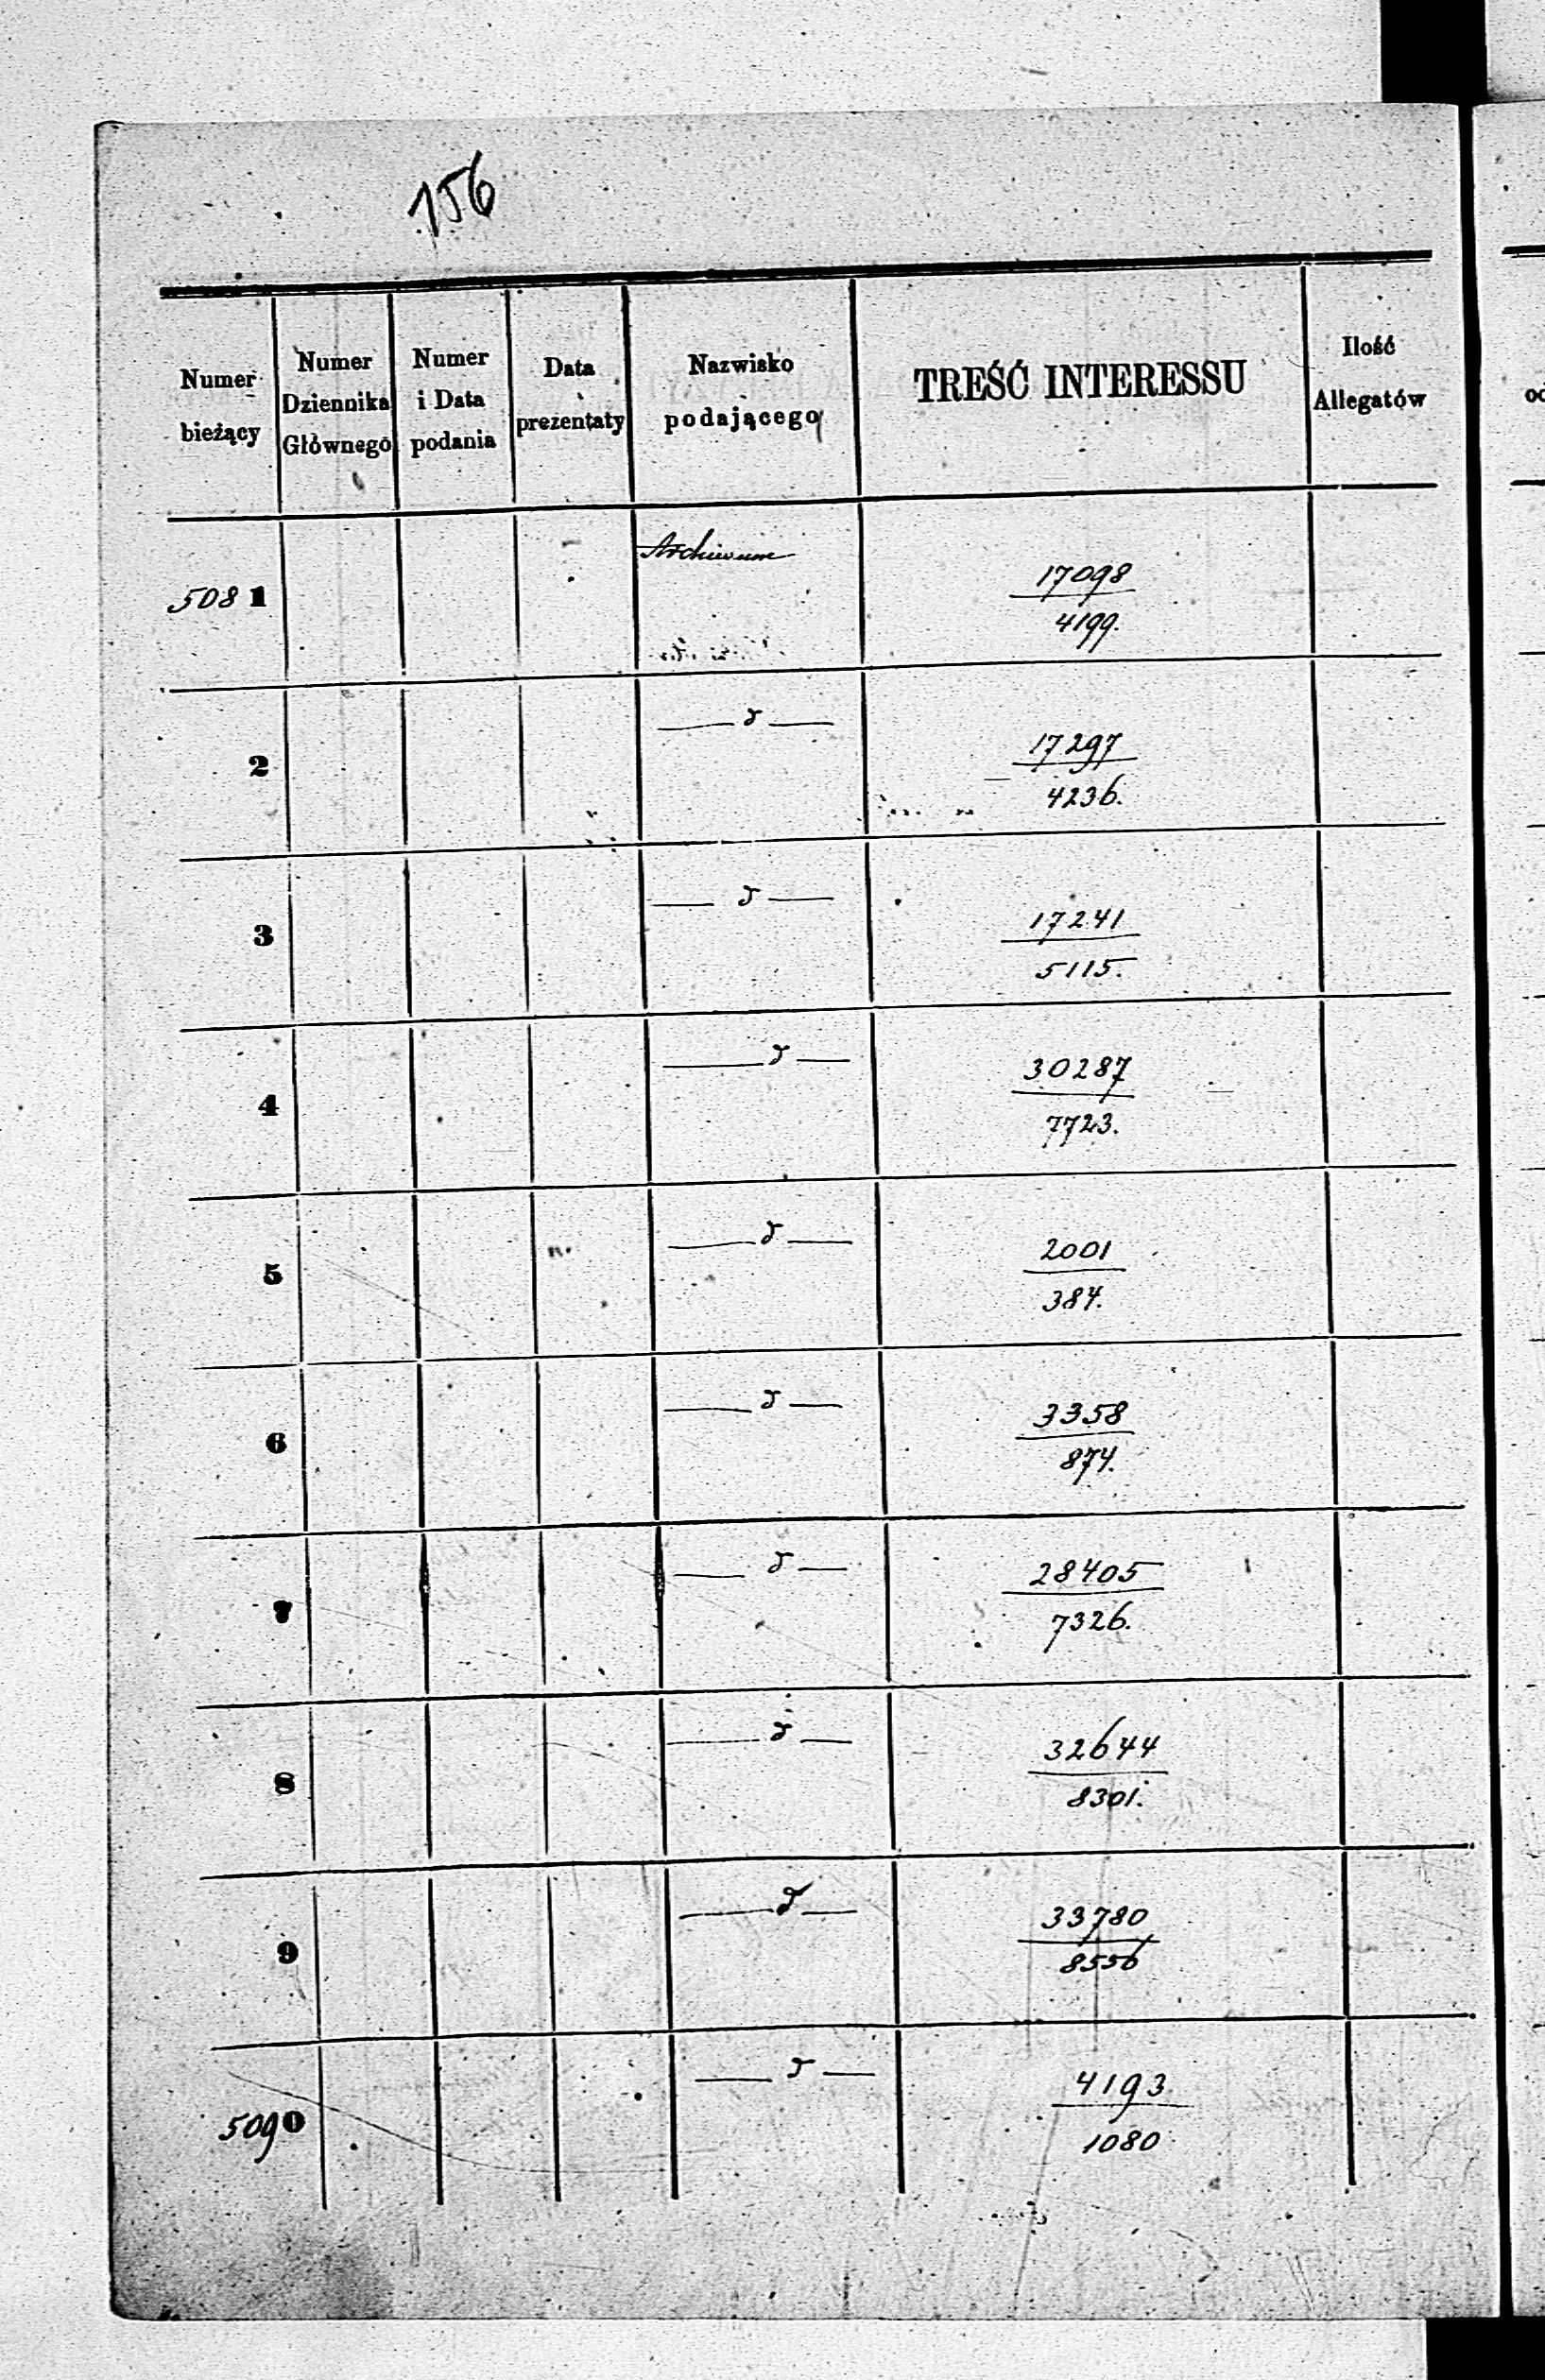 156
Numer bieżący
Numer Dziennika Głównego
Numer i Data podania
Data prezentaty
Nazwisko podającego
TREŚĆ INTERESSU
Ilość Allegatów
5081 Archiwum 17098
4199.
2 — d — 17297
4236.
3 — d — 17241
5115.
4 — d — 30287
7723.
5 — d — 2001
384.
6 — d — 3358
874.
7 — d — 28405
7326.
8 — d — 32644
8301.
9 — d — 33780
8556
5090 — d — 4193
1080